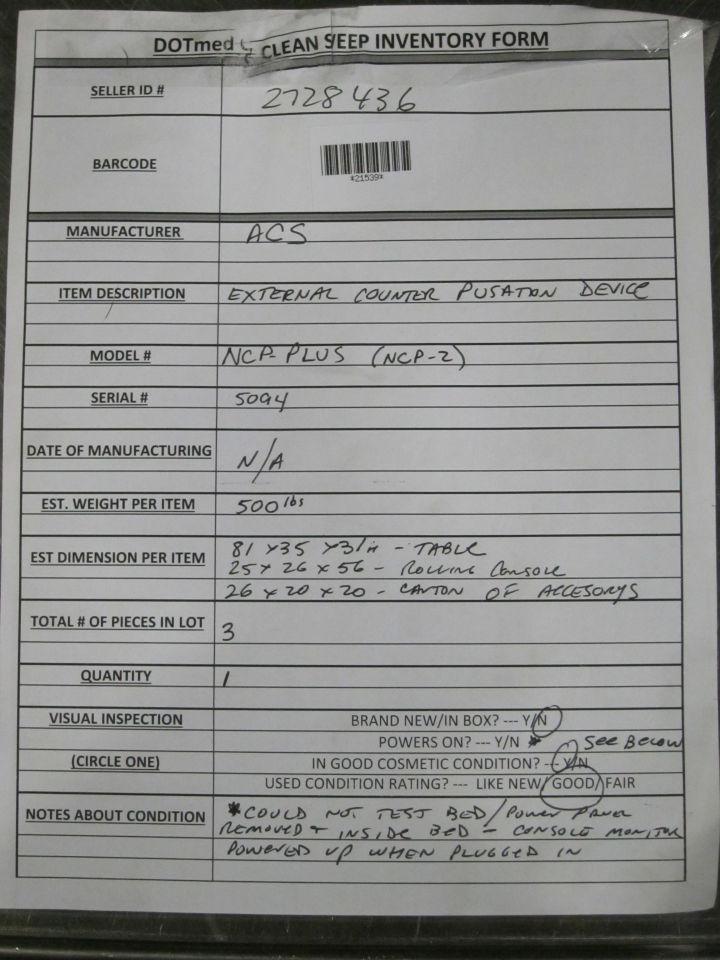 DOTmed CLEAN SWEEP INVENTORY FORM
SELLER ID # 2728436
BARCODE
*21539*
MANUFACTURER ACS
ITEM DESCRIPTION EXTERNAL COUNTER PUSATION DEVICE
MODEL # NCP-PLUS (NCP-2)
SERIAL # 5094
DATE OF MANUFACTURING N/A
EST. WEIGHT PER ITEM 500 lbs
EST DIMENSION PER ITEM 81 x 35 x 31 H - TABLE
25 x 26 x 56 - ROLLING CONSOLE
26 x 20 x 20 - CARTON OF ACCESORYS
TOTAL # OF PIECES IN LOT 3
QUANTITY 1
VISUAL INSPECTION BRAND NEW/IN BOX? --- Y/N
POWERS ON? --- Y/N * SEE BELOW
(CIRCLE ONE) IN GOOD COSMETIC CONDITION? --- Y/N
USED CONDITION RATING? --- LIKE NEW/ GOOD/ FAIR
NOTES ABOUT CONDITION *COULD NOT TEST BED/POWER PANEL
REMOVED + INSIDE BED - CONSOLE MONITOR
POWERED UP WHEN PLUGGED IN